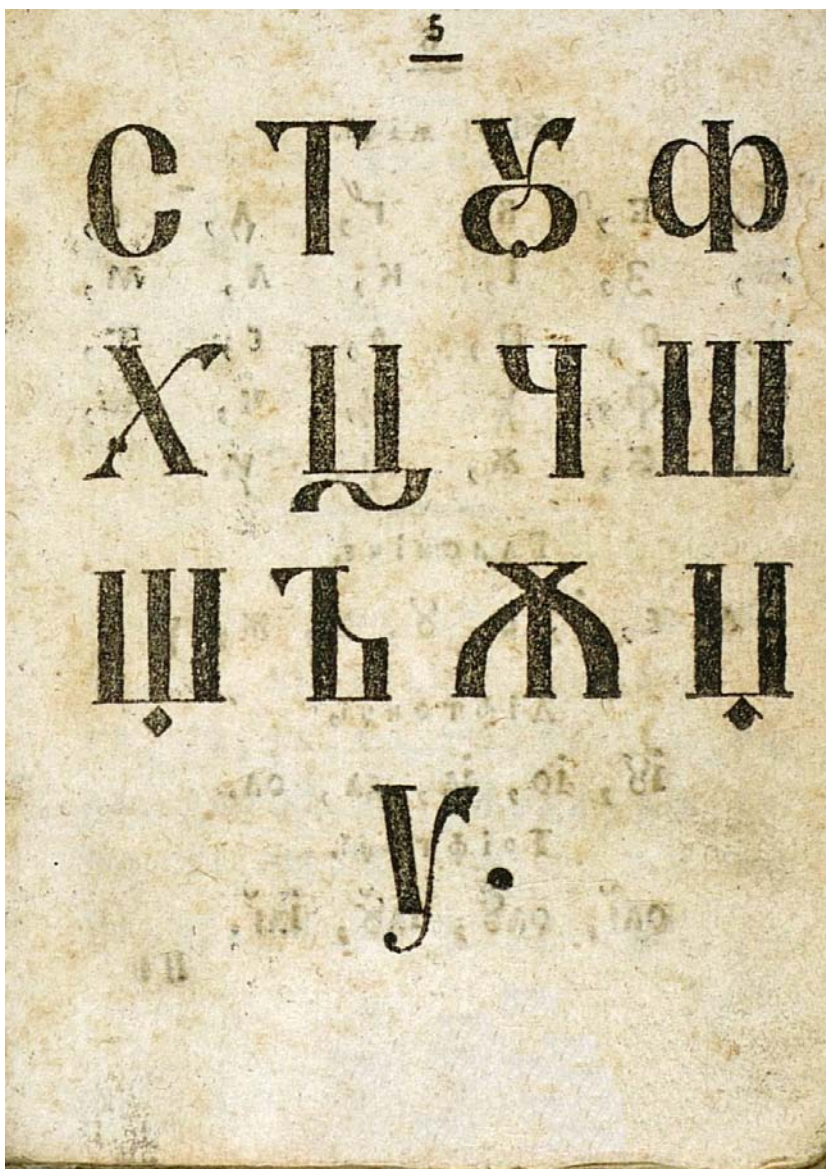 5
С Т Ꙋ Ф
Х Ц Ч Ш
Щ Ъ Ѫ Џ
Ѵ.